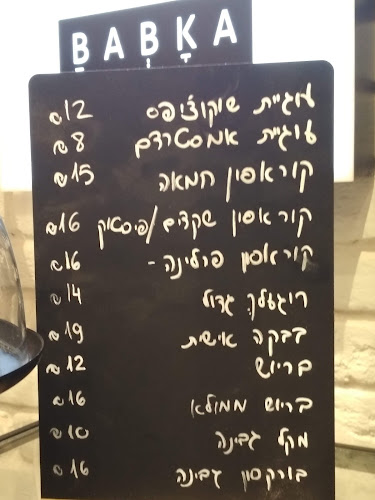 BABKA
עוגיית שוקוצ'יפס 12₪
עוגיית אמסטרדם 8₪
קוראסון חמאה 15₪
קוראסון שקדים/פיסטוק 16₪
קוראסון פרלינה - 16₪
רוגעלך גדול 14₪
בבקה אישית 19₪
בריוש 12₪
בריוש ממולא 16₪
מקל גבינה 10₪
בורקסון גבינה 16₪